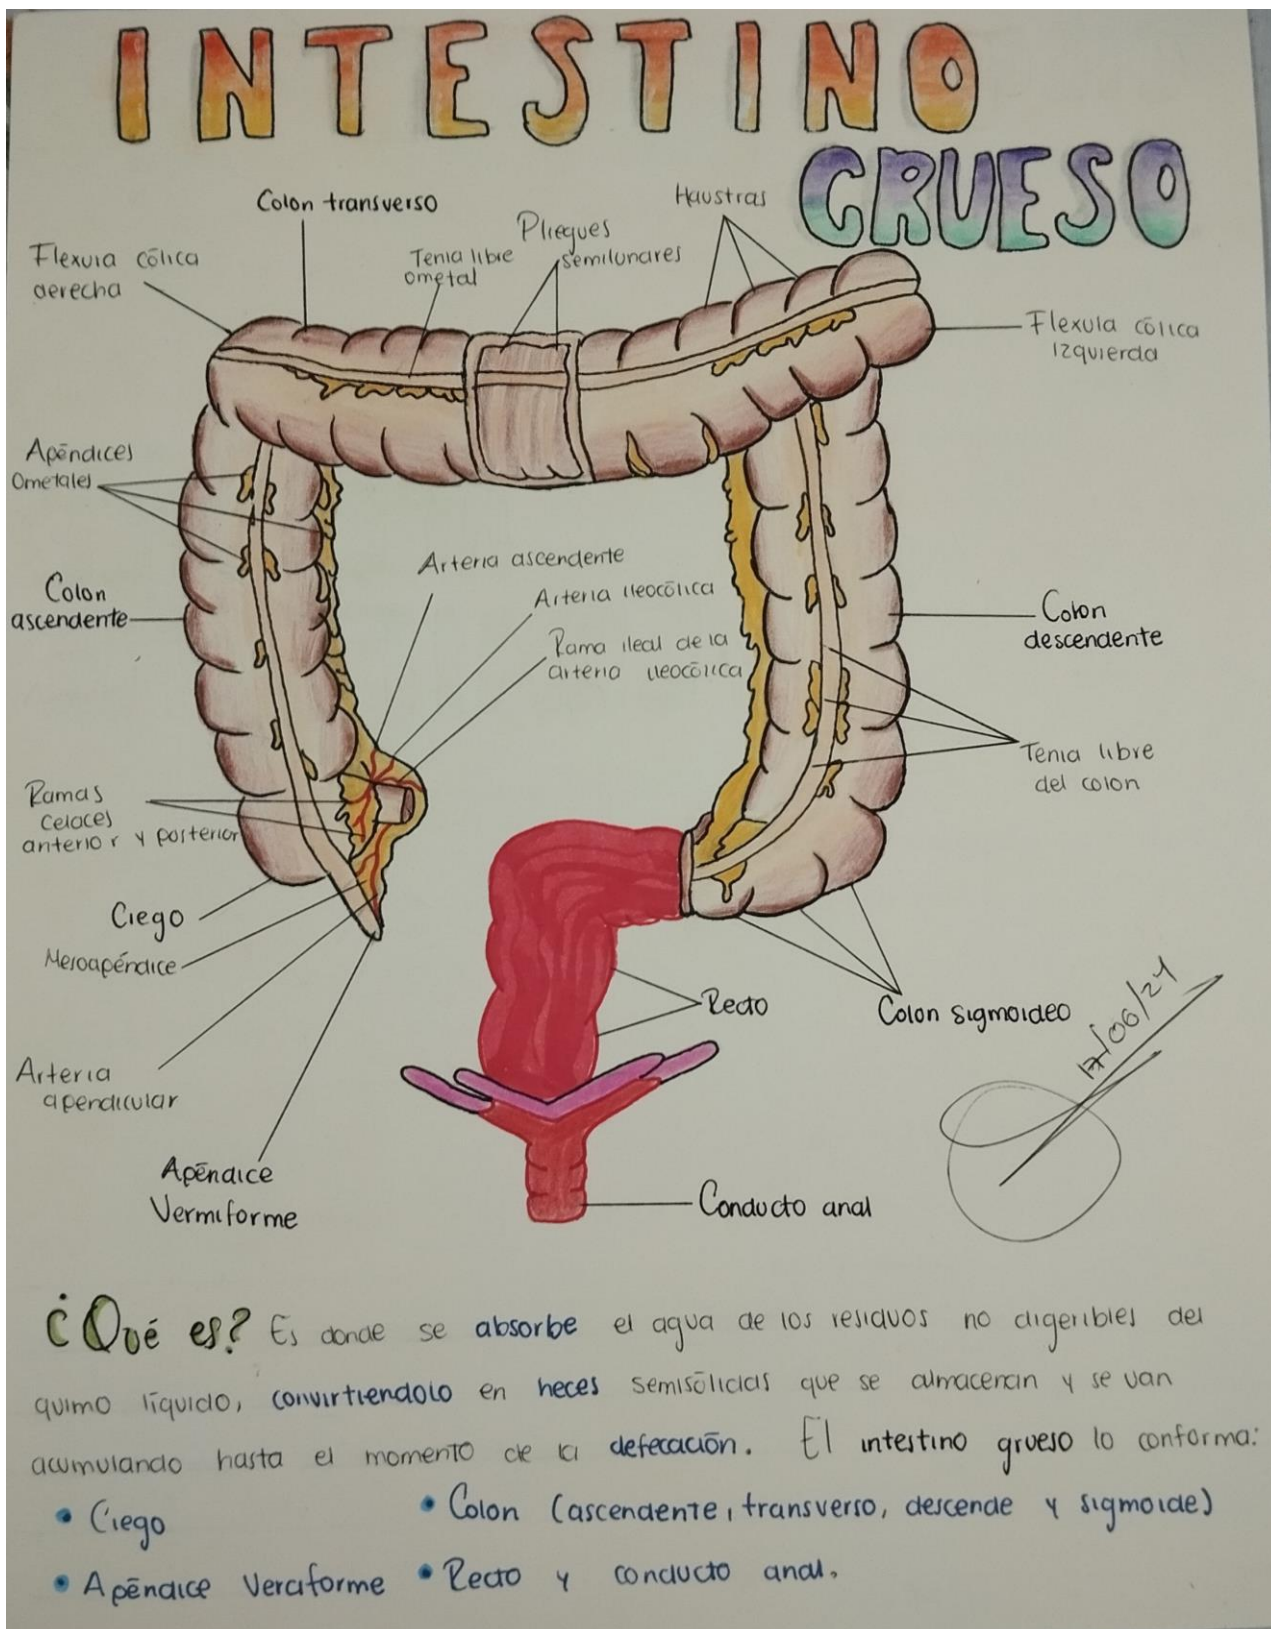 INTESTINO
GRUESO
Colon transverso
Haustras
Pliegues
semilunares
Tenia libre
ometal
Flexura cólica
derecha
Flexula cólica
izquierda
Apéndices
Ometales
Arteria ascendente
Arteria ileocólica
Rama ileal de la
arteria ileocólica
Colon
ascendente
Colon
descendente
Tenia libre
del colon
Ramas
Celaces
anterior y posterior
Ciego
Mesoapéndice
Recto
Colon sigmoideo
17/06/24
Arteria
apendicular
Apéndice
Vermiforme
Conducto anal
¿Qué es? Es donde se absorbe el agua de los residuos no digeribles del
quimo líquido, convirtiendolo en heces semisólidas que se almacenan y se van
acumulando hasta el momento de la defecación. El intestino grueso lo conforma:
• Ciego
• Colon (ascendente, transverso, descende y sigmoide)
• Apéndice Verciforme
• Recto y conducto anal.